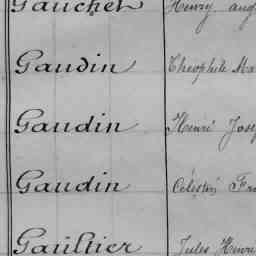 Gauchet Henry
Gaudin Théophile
Gaudin Henri
Gaudin Célestin
Gaultier Jules Henri